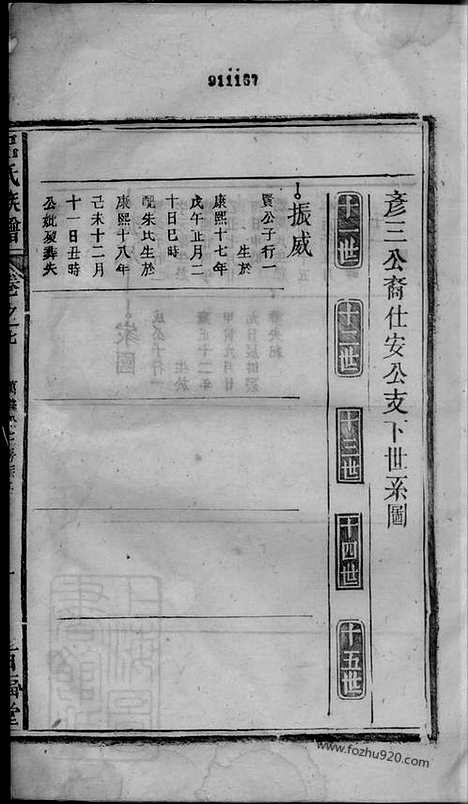 911167
彥三公裔仕安公支下世系圖
十一世
十二世
十三世
十四世
十五世
振威
賢公子行一
生於
康熙十七年
戊午正月二
十日巳時
配朱氏生於
康熙十八年
己未十二月
十一日丑時
公妣歿葬失
氏族譜
卷之
堂
www.fozhu920.com